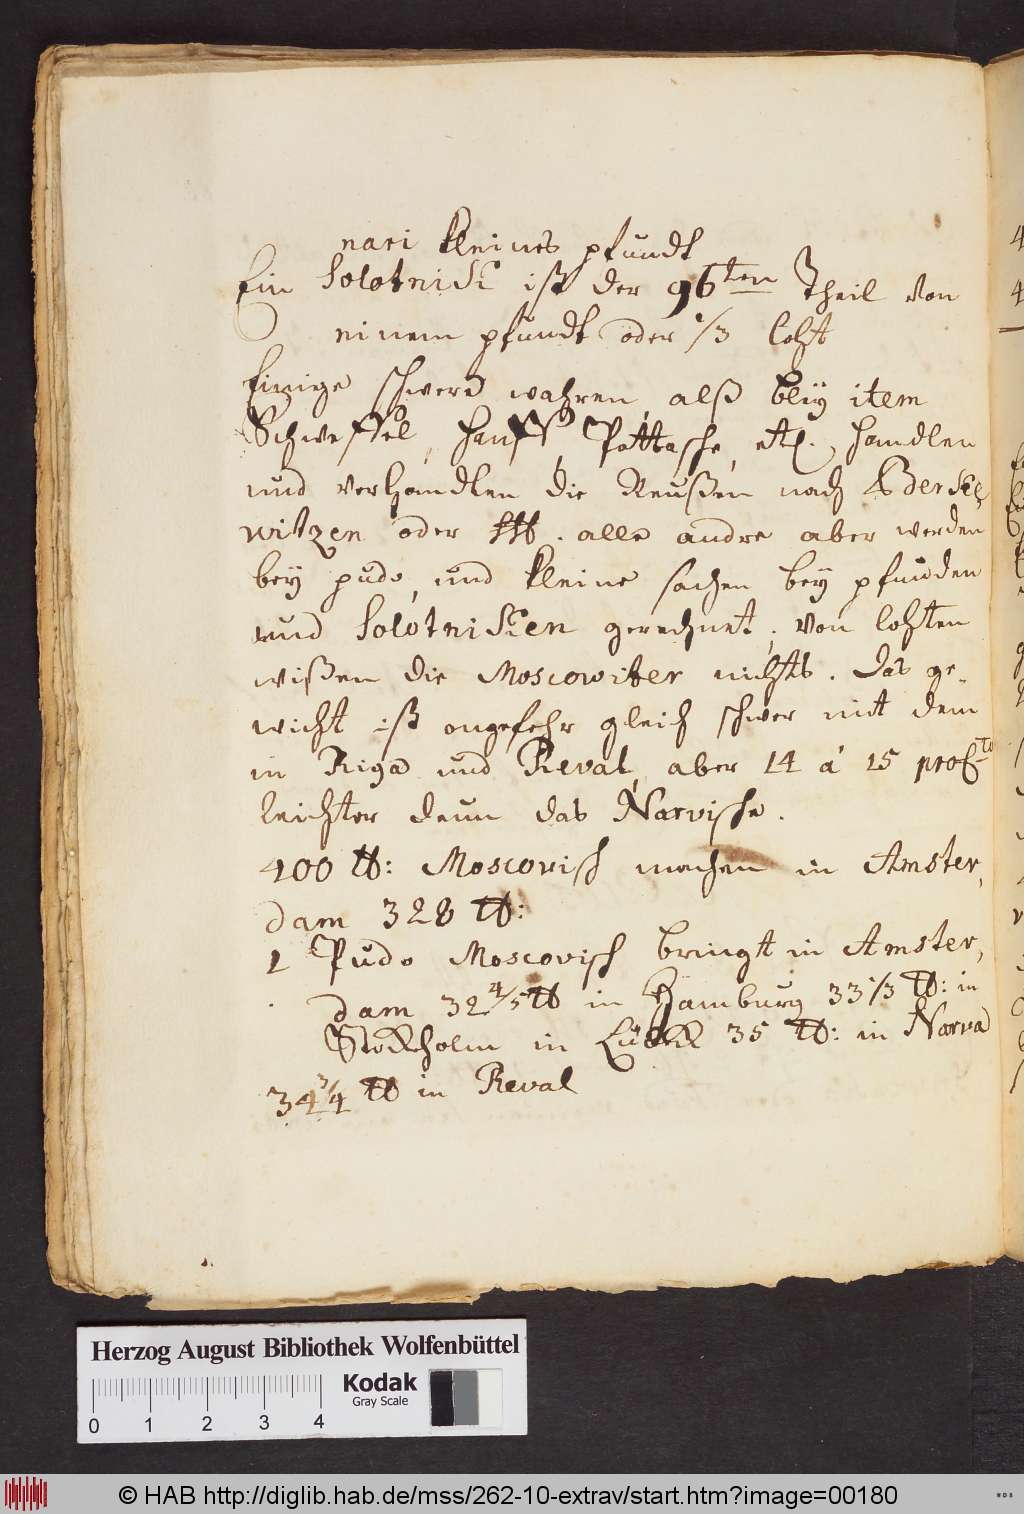 nari kleines pfundt
Ein Solotnick ist der 96ten Theil von
einem pfundt oder 1/3 loht
Einige schwere wahren, alß bley item
Schweffel, Hanff, Pottasche, etc. handlen
und verhandlen die Reußen nach Berke,
witzen oder ℔. alle andre aber werden
bey pudo, und kleine sachen bey pfunden
und Solotnicken gerechnet, von lohten
wißen die Moscowiter nichts. Das ge-
wicht ist ongefehr gleich schwer mit dem
in Riga und Reval, aber 14 á 15 proCto
leichter denn das Narvische.
400 ℔: Moscovisch machen in Amster,
dam 328 ℔:
1 Pudo Moscovisch bringt in Amster,
dam 32 4/5 ℔ in Hamburg 33 1/3 ℔: in
Stockholm in Lübeck 35 ℔: in Narva
34 3/4 ℔ in Reval
Herzog August Bibliothek Wolfenbüttel
Kodak
Gray Scale
0 1 2 3 4
© HAB http://diglib.hab.de/mss/262-10-extrav/start.htm?image=00180